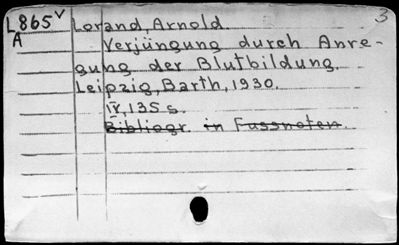 3
L865v Lorand Arnold.
A
Verjüngung durch Anre-
gung der Blutbildung.
Leipzig, Barth, 1930.
IV, 135 s.
Bibliogr. in Fussnoten.